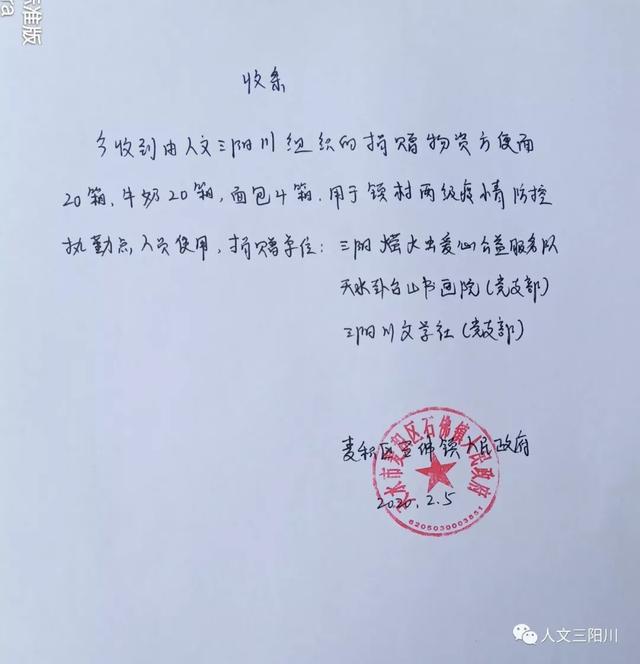 标准版
ra
收条
今收到由人文三阳川组织的捐赠物资方便面
20箱、牛奶20箱,面包4箱.用于镇村两级疫情防控
执勤点人员使用,捐赠单位:三阳萤火虫爱心公益服务队
天水卦台山书画院(党支部)
三阳川文学社(党支部)
麦积区石佛镇人民政府
2020.2.5
天水市麦积区石佛镇人民政府
6205030003851
人文三阳川